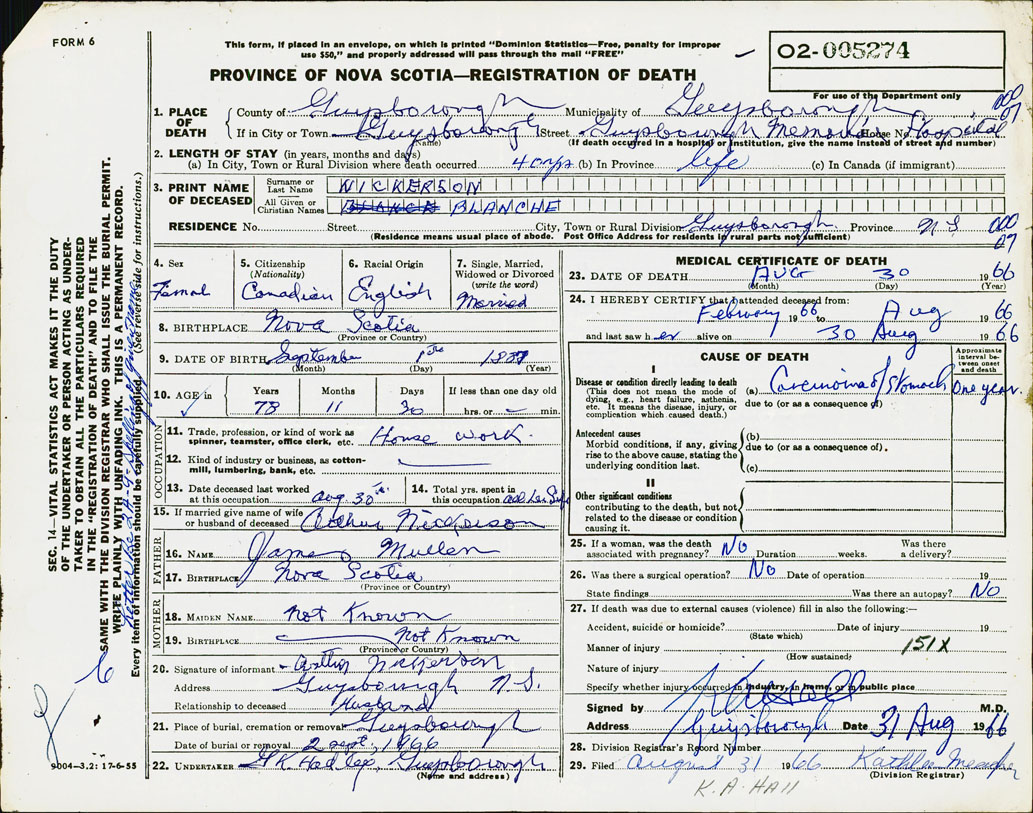 FORM 6
This form, if placed in an envelope, on which is printed "Dominion Statistics—Free, penalty for improper
use $50," and properly addressed will pass through the mail "FREE"
O2-005274
For use of the Department only
PROVINCE OF NOVA SCOTIA—REGISTRATION OF DEATH
1. PLACE OF DEATH
County of Guysborough Municipality of Guysborough
If in City or Town Guysborough Street Guysborough Memorial House No. Hospital
(Name) (If death occurred in a hospital or institution, give the name instead of street and number)
2. LENGTH OF STAY (in years, months and days)
(a) In City, Town or Rural Division where death occurred (b) In Province life (c) In Canada (if immigrant)
3. PRINT NAME OF DECEASED
Surname or Last Name NICKERSON
All Given or Christian Names BLANCHE
RESIDENCE No. Street City, Town or Rural Division Guysborough Province N.S.
(Residence means usual place of abode. Post Office Address for residents in rural parts not sufficient)
4. Sex Femal
5. Citizenship (Nationality) Canadian
6. Racial Origin English
7. Single, Married, Widowed or Divorced (write the word) Married
8. BIRTHPLACE Nova Scotia
(Province or Country)
9. DATE OF BIRTH September 1st 1887
(Month) (Day) (Year)
10. AGE in Years 78 Months 11 Days 30 If less than one day old hrs. or min.
OCCUPATION
11. Trade, profession, or kind of work as spinner, teamster, office clerk, etc. House work.
12. Kind of industry or business, as cotton-mill, lumbering, bank, etc.
13. Date deceased last worked at this occupation Aug. 30th
14. Total yrs. spent in this occupation all her life
15. If married give name of wife or husband of deceased Arthur Nickerson
FATHER
16. NAME James Mullen
17. BIRTHPLACE Nova Scotia
(Province or Country)
MOTHER
18. MAIDEN NAME not Known
19. BIRTHPLACE Not Known
(Province or Country)
20. Signature of informant Arthur Nickerson
Address Guysborough N.S.
Relationship to deceased Husband
21. Place of burial, cremation or removal Guysborough
Date of burial or removal 2 Sept, 1966
22. UNDERTAKER Guysborough
(Name and address)
9004—3.2: 17-6-55
MEDICAL CERTIFICATE OF DEATH
23. DATE OF DEATH AUG 30 1966
(Month) (Day) (Year)
24. I HEREBY CERTIFY that I attended deceased from:
February 1966 to Aug 1966
and last saw her alive on 30 Aug 1966
CAUSE OF DEATH
Approximate interval between onset and death
I
Disease or condition directly leading to death
(This does not mean the mode of dying, e.g., heart failure, asthenia, etc. It means the disease, injury, or complication which caused death.)
(a) Carcinoma of Stomach One year.
due to (or as a consequence of)
Antecedent causes
Morbid conditions, if any, giving rise to the above cause, stating the underlying condition last.
(b)
due to (or as a consequence of).
(c)
II
Other significant conditions contributing to the death, but not related to the disease or condition causing it.
25. If a woman, was the death associated with pregnancy? No Duration weeks. Was there a delivery?
26. Was there a surgical operation? No Date of operation 19
State findings Was there an autopsy? No
27. If death was due to external causes (violence) fill in also the following:—
Accident, suicide or homicide? Date of injury 19
(State which)
Manner of injury 151X
(How sustained)
Nature of injury
Specify whether injury occurred in industry, in home, or in public place
Signed by M.D.
Address Guysborough Date 31 Aug 1966
28. Division Registrar's Record Number
29. Filed August 31 1966 Kathleen
(Division Registrar)
K. A. HAll
SEC. 14—VITAL STATISTICS ACT MAKES IT THE DUTY
OF THE UNDERTAKER OR PERSON ACTING AS UNDER-
TAKER TO OBTAIN ALL THE PARTICULARS REQUIRED
IN THE "REGISTRATION OF DEATH" AND TO FILE THE
SAME WITH THE DIVISION REGISTRAR WHO SHALL ISSUE THE BURIAL PERMIT.
WRITE PLAINLY WITH UNFADING INK. THIS IS A PERMANENT RECORD.
Every item of information should be carefully supplied. (See reverse side for instructions.)